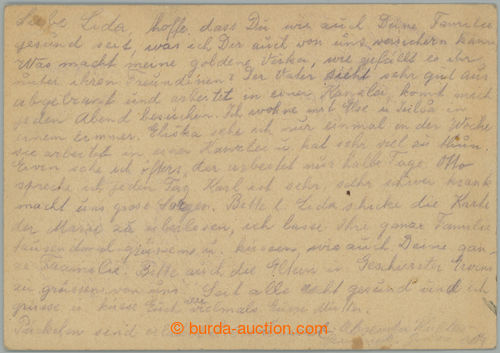 Liebe Lida, hoffe, dass Du wie auch Deine Familie
gesund seit, was ich Dir auch von uns versichern kann.
Was macht meine goldene Verka, wie gefällt es ihr
unter ihren Freundinen? Der Vater sieht sehr gut aus
abgebrannt und arbeitet in einer Kanzlei, kommt mich
jeden Abend besuchen. Ich wohne mit Else u. in
einem Zimmer. Eliska sehe ich nur einmal in der Woche
sie arbeitet in einer Kanzlei u. hat sehr viel zu thun.
Erwin sehe ich öfters, der arbeitet nur halbe Tage. Otto
spreche ich jeden Tag. Karl ist sehr, sehr schwer krank
macht uns grose Sorgen. Bitte l. Lida schicke die Karte
der Marie zu, ich lasse Ihre ganze Familie
tausendmal grüssen u. küssen, wie auch Deine gan-
ze Faamilie. Bitte auch die Eltern u. Geschwister Erwins
zu grüssen von uns. Seit alle recht gesund und ich
grüsse u. küsse Euch alle vielmals Eure Mutter.
Päckchen send
burda-auction.com